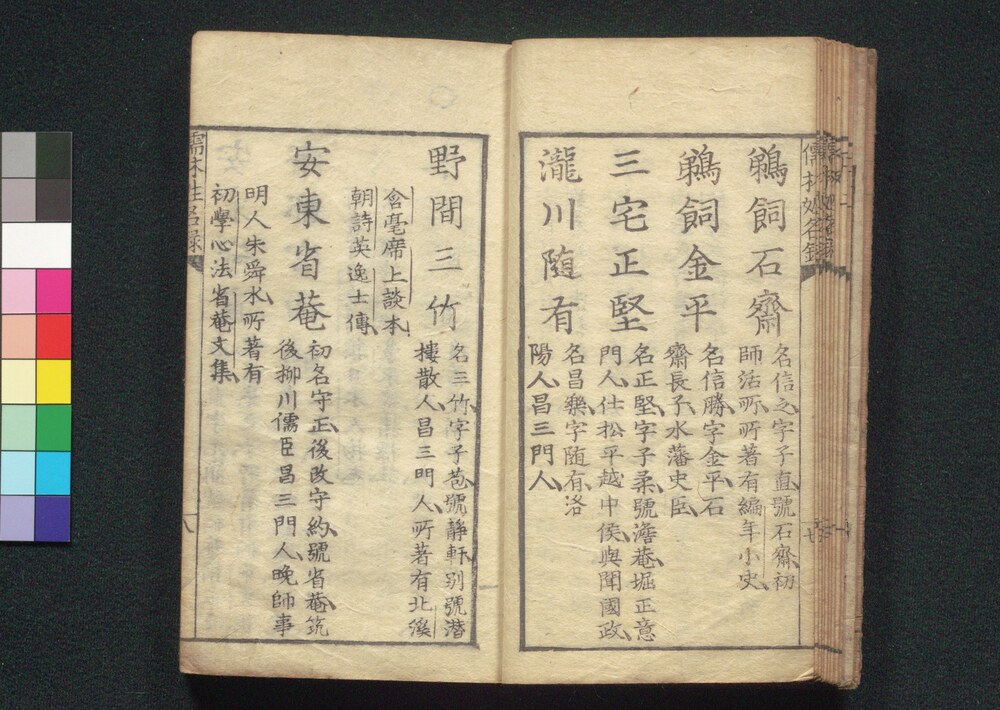 鵜飼石齋
名信之字子直號石齋初
師活所所著有編年小史
鵜飼金平
名信勝字金平石
齋長子水藩史臣
三宅正堅
名正堅字子柔號澹菴堀正意
門人仕松平越中侯與聞國政
瀧川随有
名昌樂字随有洛
陽人昌三門人
野間三竹
名三竹字子苞號靜軒别號潛
樓散人昌三門人所著有北溪
含毫席上談本
朝詩英逸士傳
安東省菴
初名守正後改守約號省菴筑
後柳川儒臣昌三門人晩師事
明人朱舜水所著有
初學心法省菴文集
八